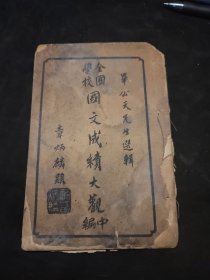 畢公天先生選輯
全國學校
國文成績大觀
中編
章炳麟題